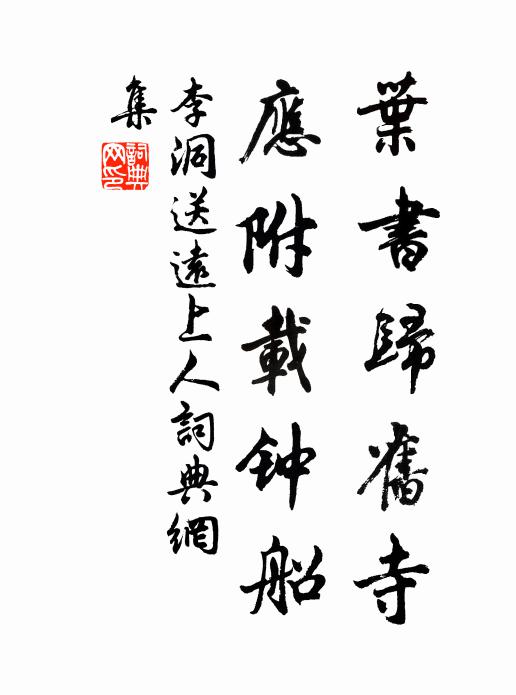 葉書歸舊寺
應附載钟船
李洞送遠上人詞典網
集
詞典網印